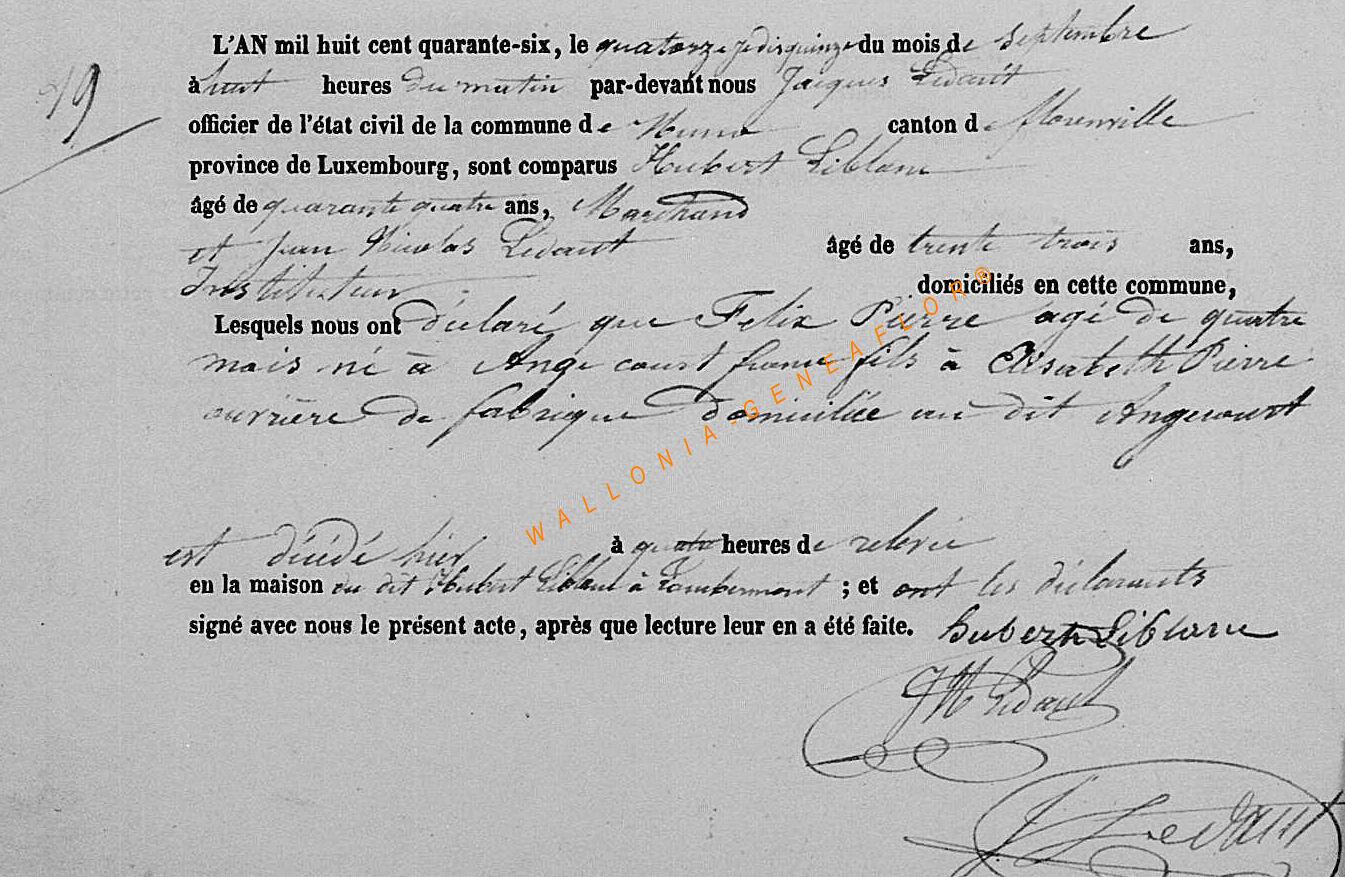 19
L'AN mil huit cent quarante-six, le quatorze je dis quinze du mois de septembre
à huit heures du matin par-devant nous Jacques Ledant
officier de l'état civil de la commune de canton de florenville
province de Luxembourg, sont comparus Hubert Liblanc
âgé de quarante quatre ans, Marchand
et Jean Nicolas Ledant âgé de trente trois ans,
Instituteur domiciliés en cette commune,
Lesquels nous ont déclaré que Felix Pierre agé de quatre
mois né à Ange court france fils à Elisabeth Pierre
ouvrière de fabrique domiciliée au dit Angecourt
WALLONIA-GENEAFLOR®
est décédé hier à quatre heures de relevée
en la maison du dit Hubert Liblanc à Lambermont ; et ont les déclarants
signé avec nous le présent acte, après que lecture leur en a été faite. hubert Liblanc
JN Ledant
J Ledant